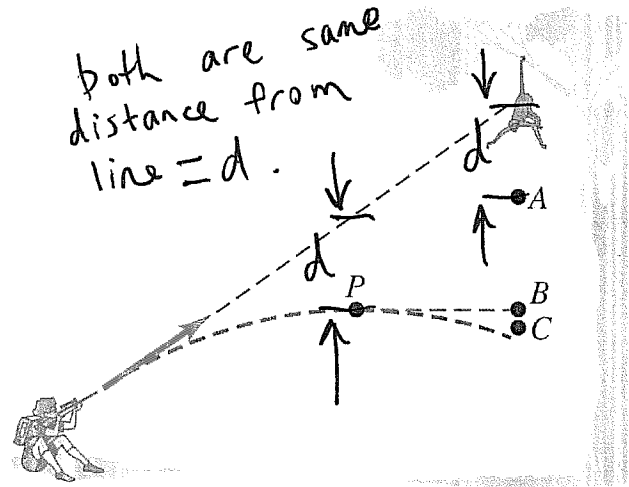 both are same
distance from
line = d.
d
A
d
P
B
C